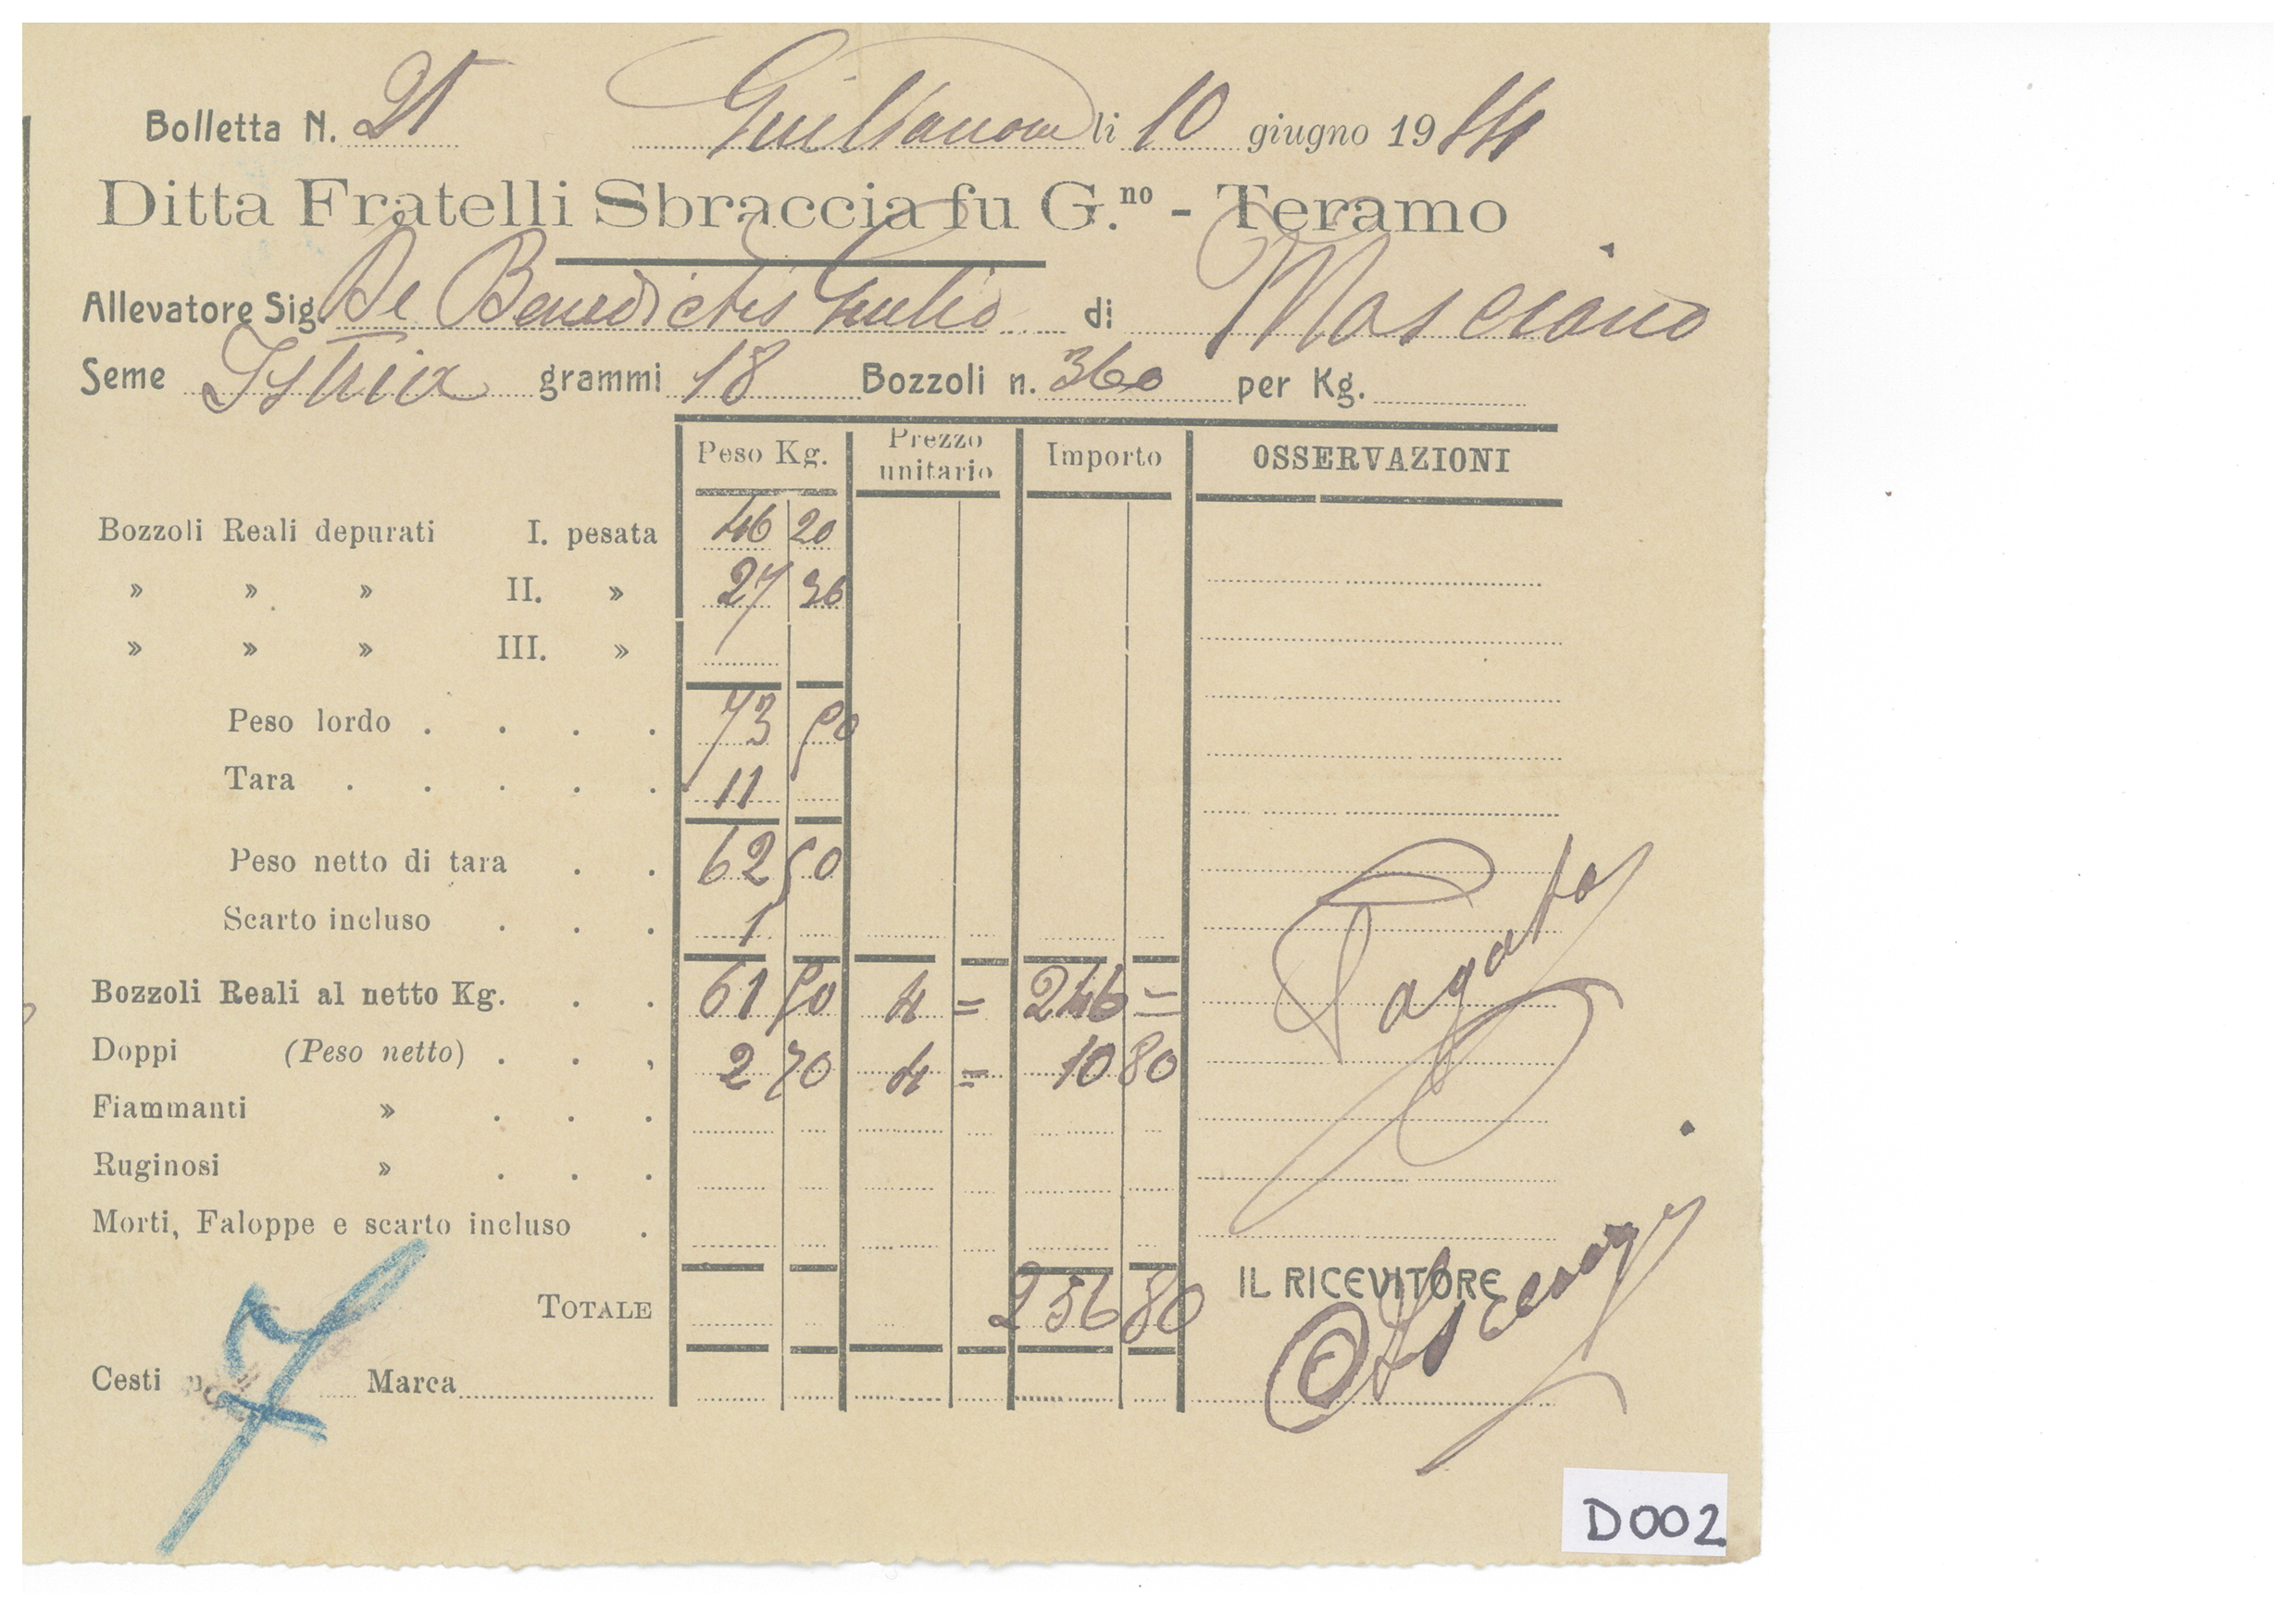 Bolletta N. 21 Giulianova li 10 giugno 1914
Ditta Fratelli Sbraccia fu G.no - Teramo
Allevatore Sig. De Benedictis Giulio di Mosciano
Seme Istria grammi 18 Bozzoli n. 360 per Kg.
Peso Kg. Prezzo unitario Importo OSSERVAZIONI
Bozzoli Reali depurati I. pesata 46 20
» » » II. » 27 30
» » » III. »
Peso lordo . . . . 73 50
Tara . . . . . 11
Peso netto di tara . . 62 50
Scarto incluso . . . 1
Bozzoli Reali al netto Kg. . . 61 50 4 = 246 =
Doppi (Peso netto) . . , 2 70 4 = 10 80
Fiammanti » . . .
Ruginosi » . . .
Morti, Faloppe e scarto incluso .
TOTALE 256 80
Pagato
IL RICEVITORE
Cesti n. 7 Marca
D002